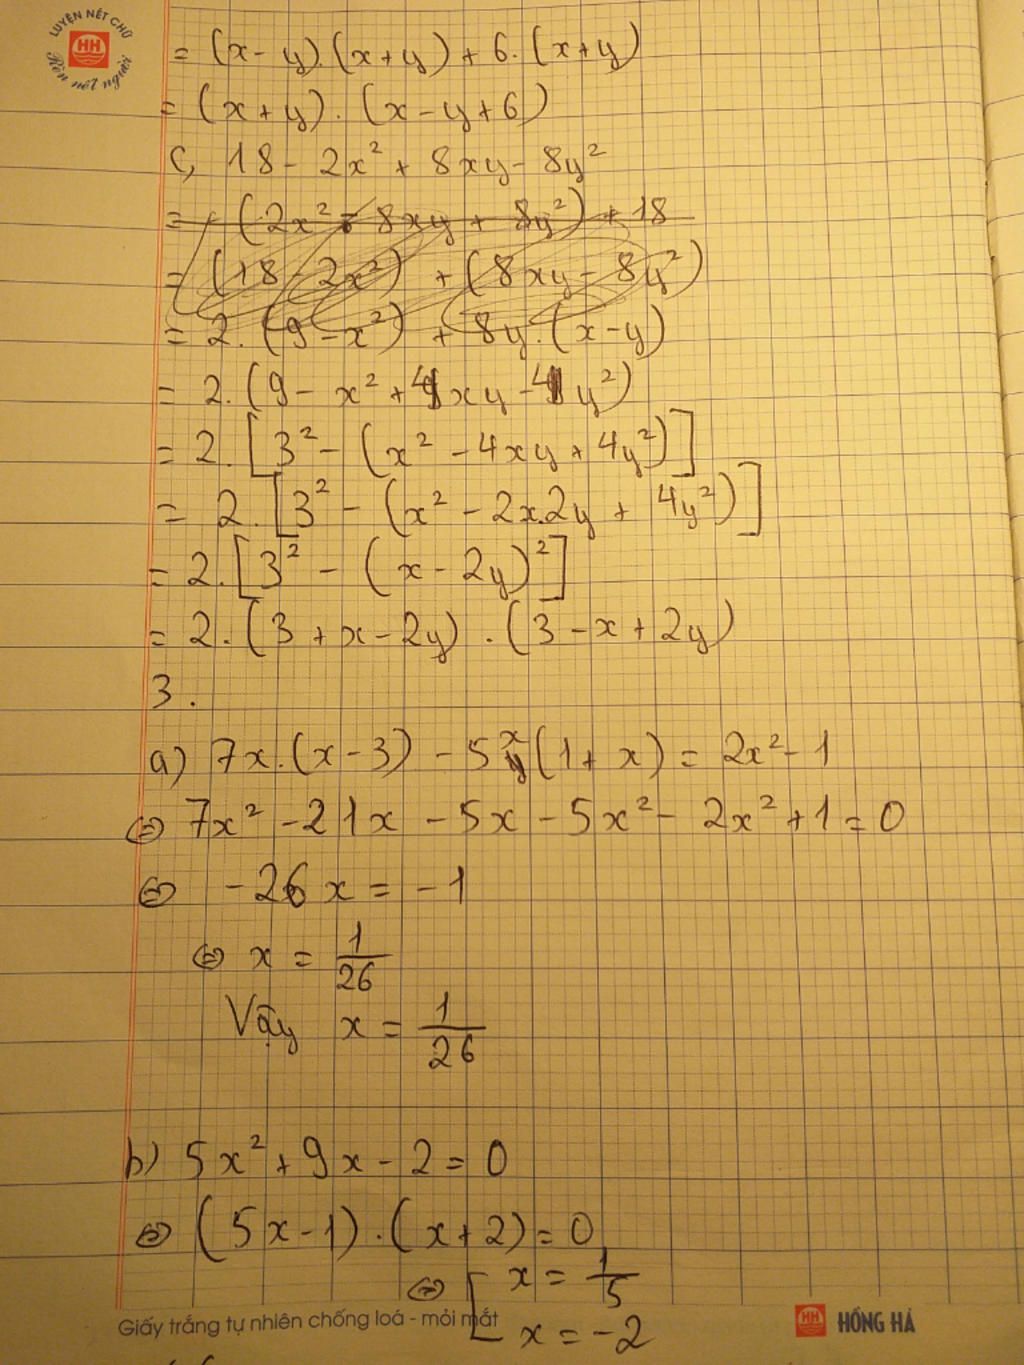 LUYỆN NÉT CHỮ
HH
Rèn nết người
= (x - y).(x + y) + 6.(x + y)
= (x + y).(x - y + 6)
c, 18 - 2x² + 8xy - 8y²
= (2x² - 8xy + 8y²) + 18
= (18 - 2x²) + (8xy - 8y²)
= 2.(9 - x²) + 8y.(x - y)
= 2.(9 - x² + 4xy - 4y²)
= 2.[3² - (x² - 4xy + 4y²)]
= 2.[3² - (x² - 2x.2y + 4y²)]
= 2.[3² - (x - 2y)²]
= 2.(3 + x - 2y).(3 - x + 2y)
3.
a) 7x.(x - 3) - 5x(1 + x) = 2x² - 1
⇔ 7x² - 21x - 5x - 5x² - 2x² + 1 = 0
⇔ -26x = -1
⇔ x = 1/26
Vậy x = 1/26
b) 5x² + 9x - 2 = 0
⇔ (5x - 1).(x + 2) = 0
⇔ [ x = 1/5
x = -2
Giấy trắng tự nhiên chống loá - mỏi mắt
HH HỒNG HÀ